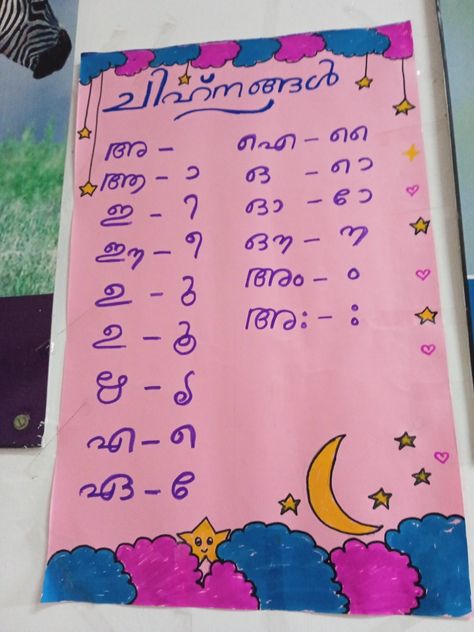 ചിഹ്‌നങ്ങൾ
അ –
ആ – ാ
ഇ – ി
ഈ – ീ
ഉ – ു
ഉ – ൂ
ഋ – ൃ
എ – െ
ഏ – േ
ഐ – ൈ
ഒ – ൊ
ഓ – ോ
ഔ – ൗ
അം – ം
അഃ – ഃ